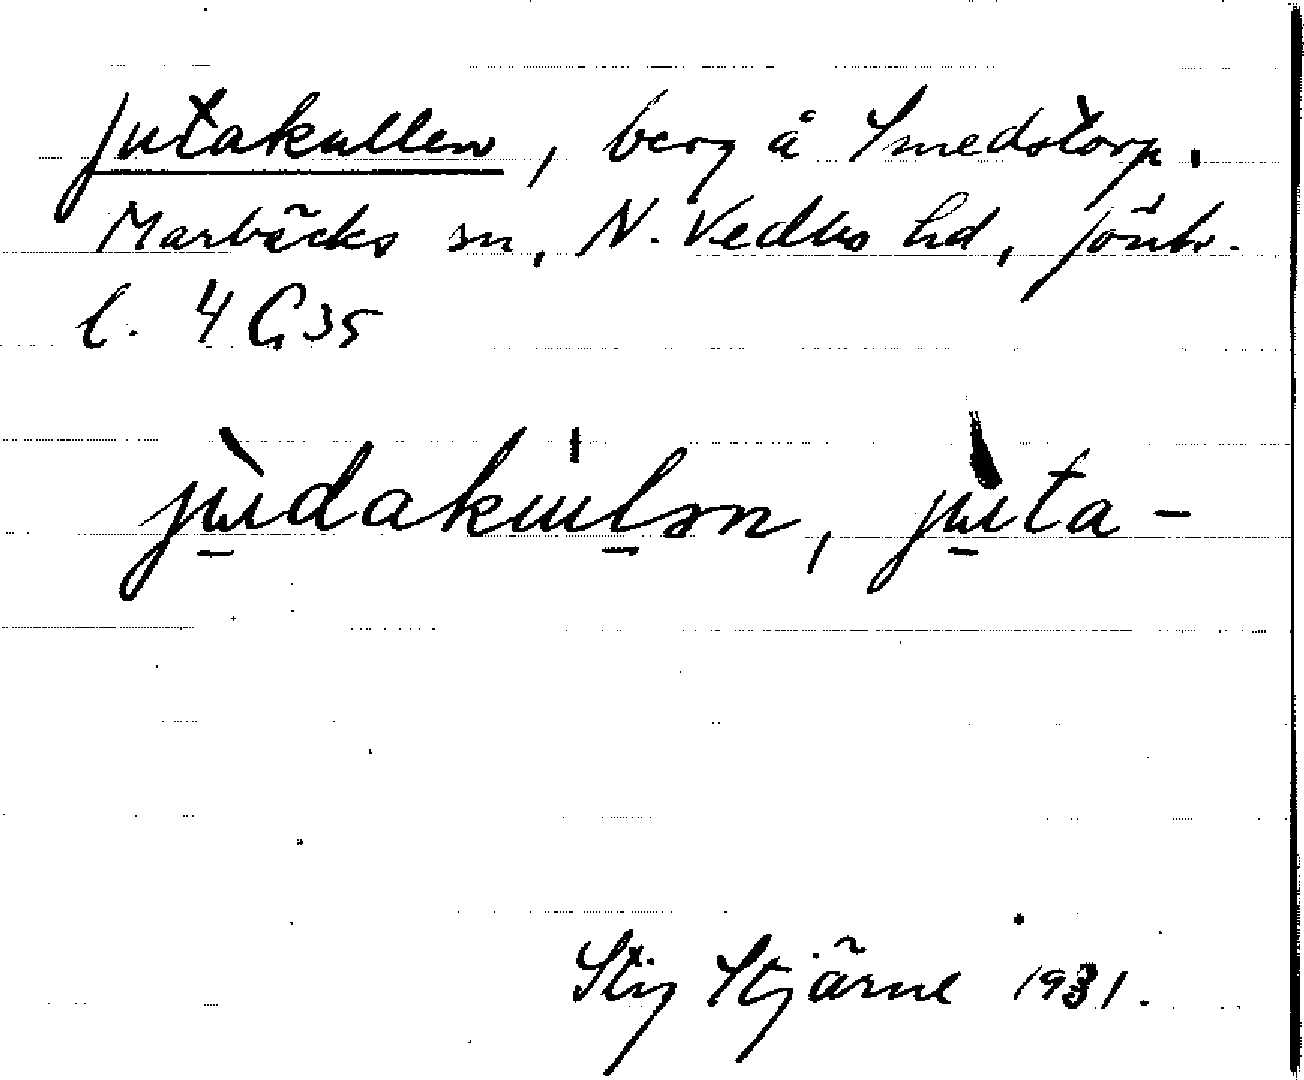 Jutakullen, berg å Smedstorp,
Marbäcks sn, N. Vedbo hd, Jönk.
l. 4 G 35
jùdakúlən, jùta-
Stig Stjärne 1931.